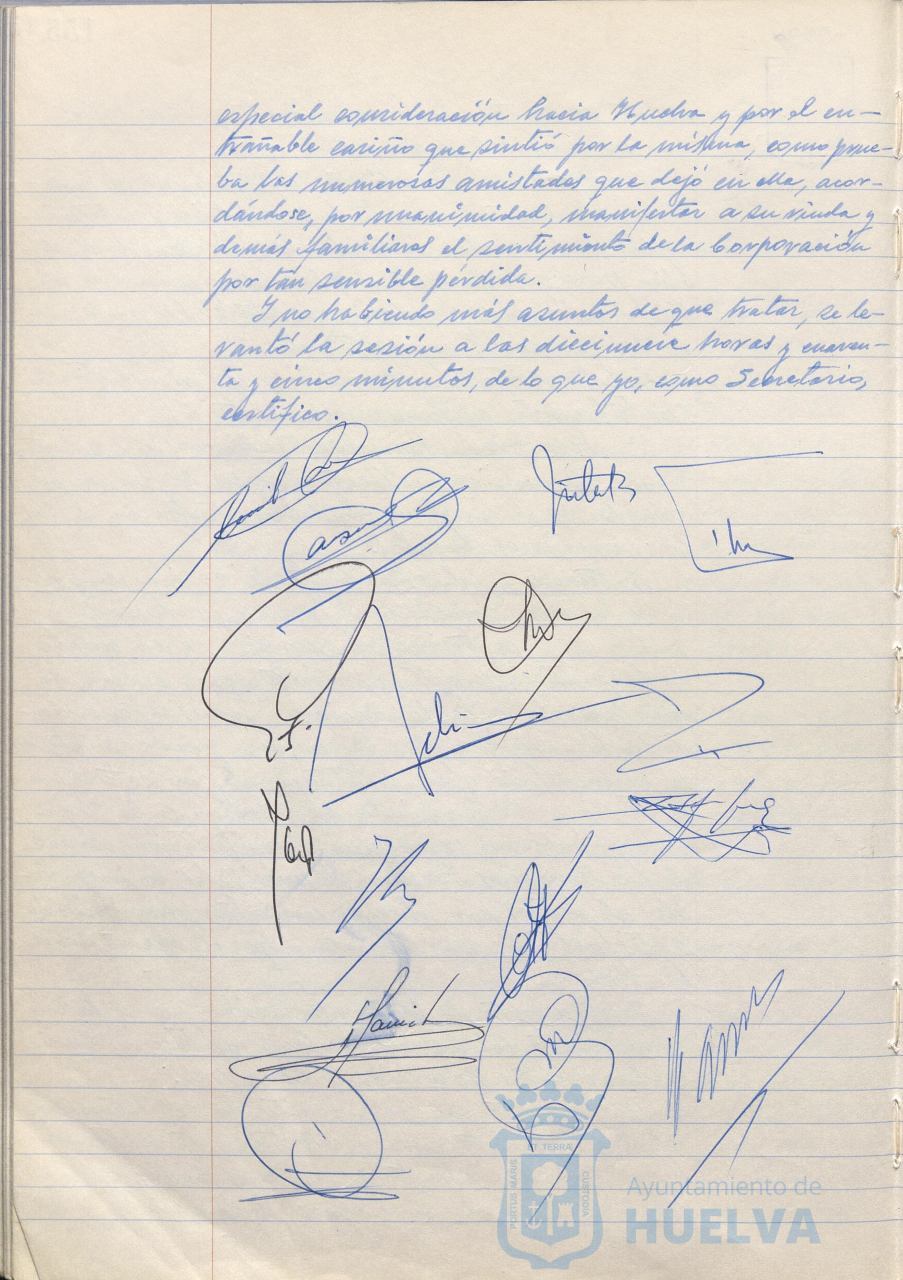 especial consideración hacia Huelva y por el en-
trañable cariño que sintió por la misma, como prue-
ba las numerosas amistades que dejó en ella, acor-
dándose, por unanimidad, manifestar a su viuda y
demás familiares el sentimiento de la Corporación
por tan sensible pérdida.
Y no habiendo más asuntos de que tratar, se le-
vantó la sesión a las diecinueve horas y cuaren-
ta y cinco minutos, de lo que yo, como Secretario,
certifico.
ET TERRA
PORTUS MARIS
CUSTODIA
Ayuntamiento de
HUELVA